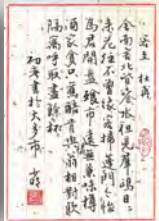 客至 杜甫
舍南舍北皆春水但見群鷗日日
來花徑不曾緣客掃蓬門今始
為君開盤飧市遠無兼味樽
酒家貧只舊醅肯與鄰翁相對飲
隔籬呼取盡餘杯
書於大多市